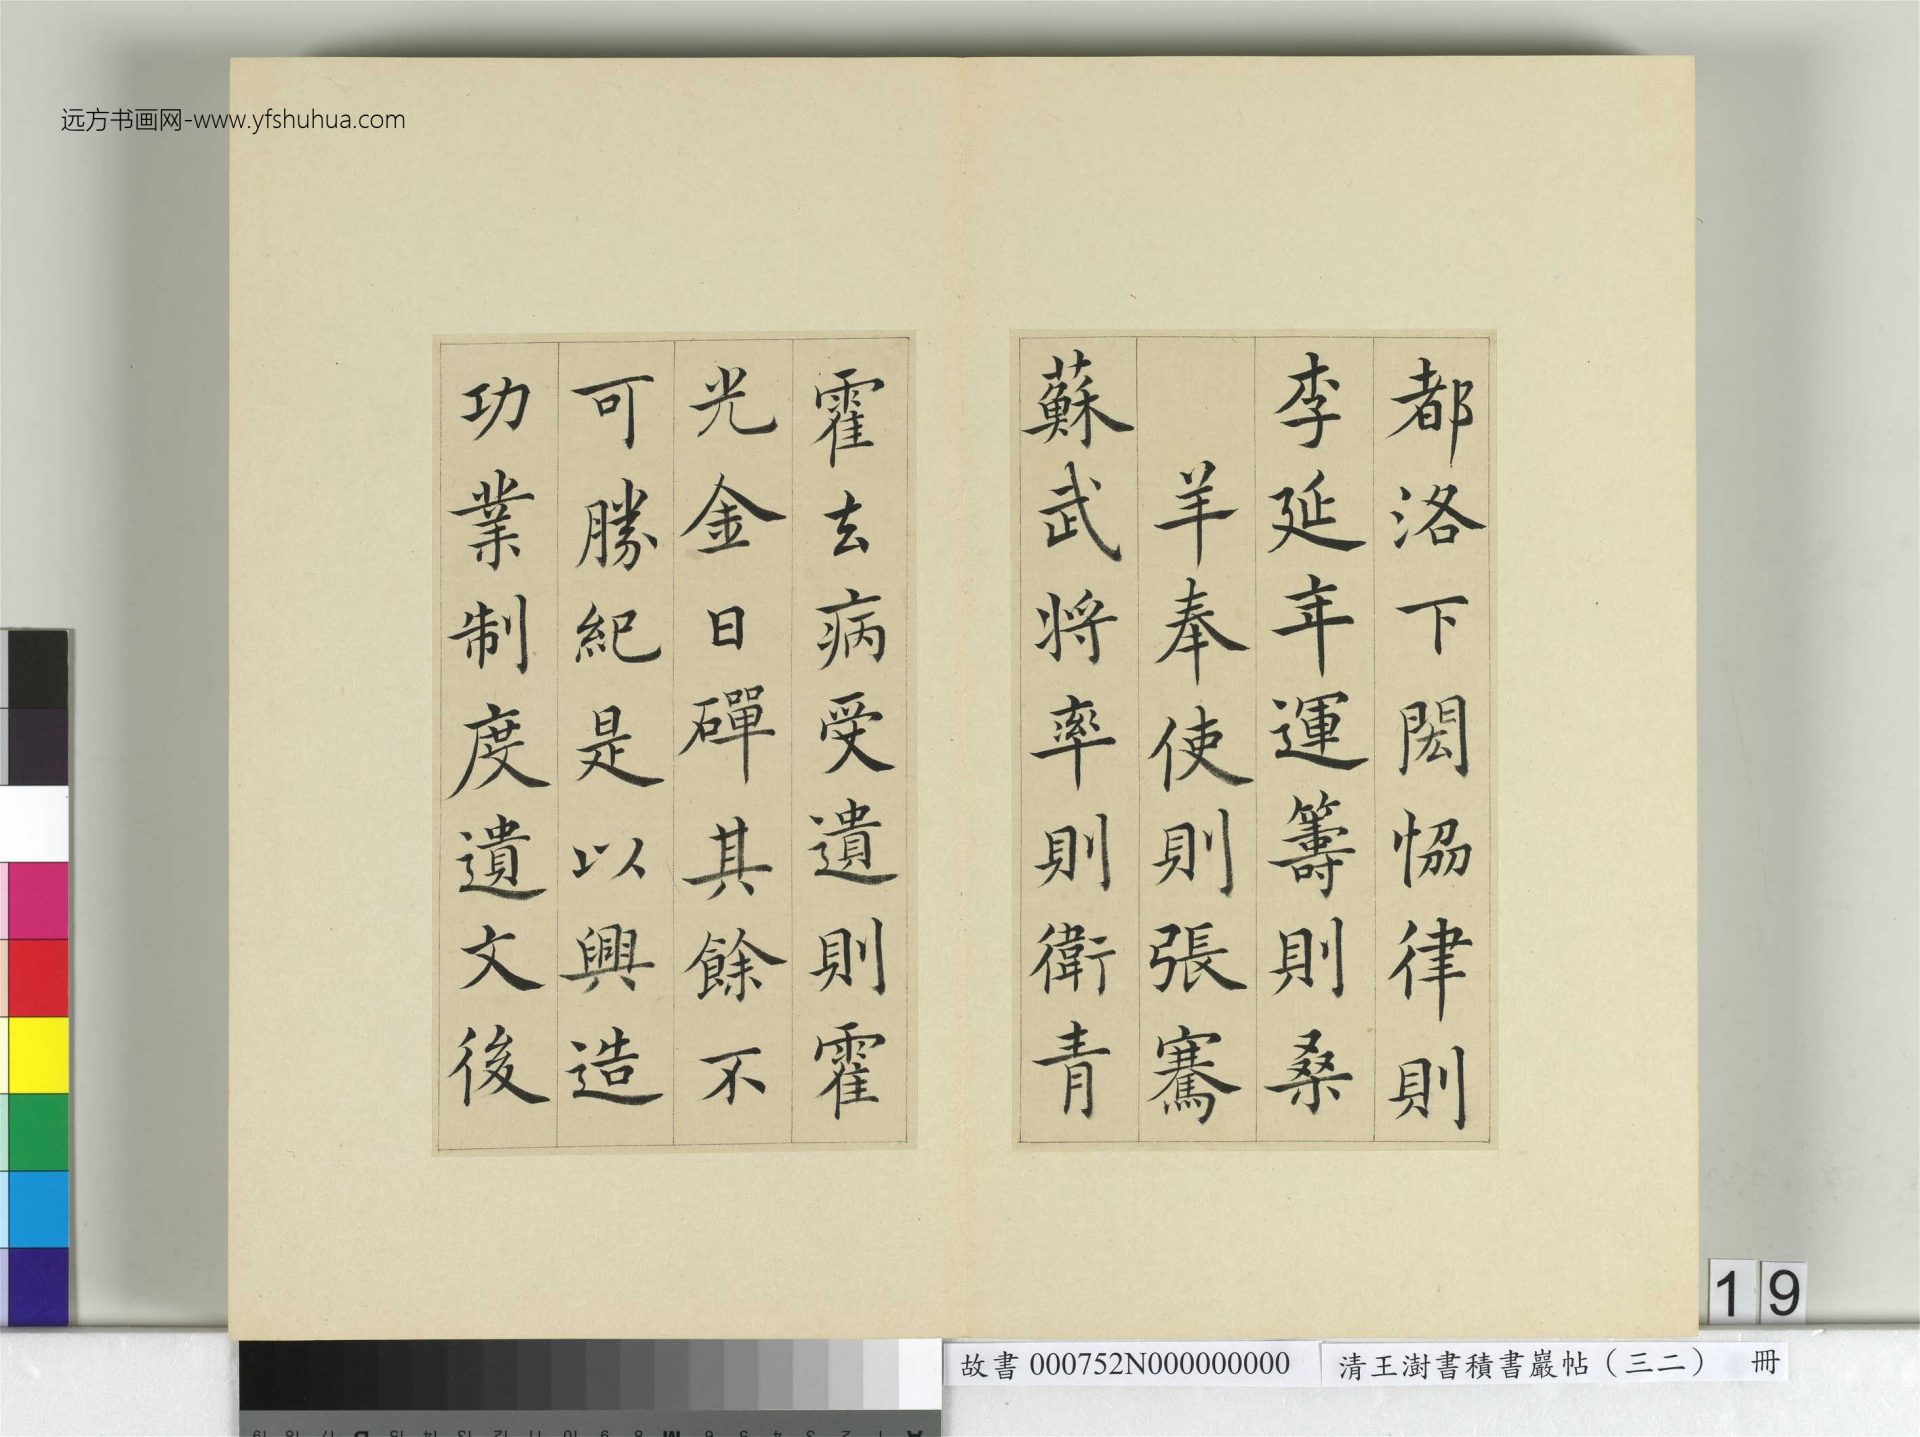 远方书画网-www.yfshuhua.com
都洛下閎恊律則
李延年運籌則桑
羊奉使則張騫
蘇武將率則衛青
霍去病受遺則霍
光金日磾其餘不
可勝紀是以興造
功業制度遺文後
19
故書 000752N000000000 清王澍書積書巖帖（三二） 冊